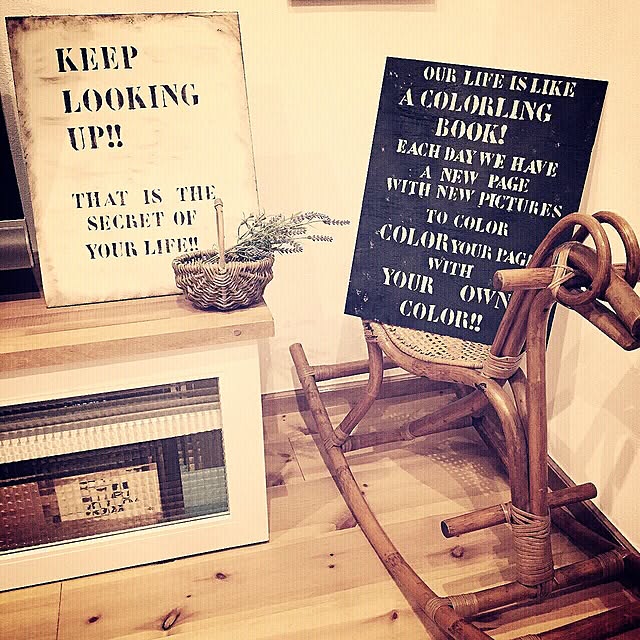 KEEP
LOOKING
UP!!
THAT IS THE
SECRET OF
YOUR LIFE!!
OUR LIFE IS LIKE
A COLORLING
BOOK!
EACH DAY WE HAVE
A NEW PAGE
WITH NEW PICTURES
TO COLOR
COLOR YOUR PAG
WITH
YOUR OWN
COLOR!!